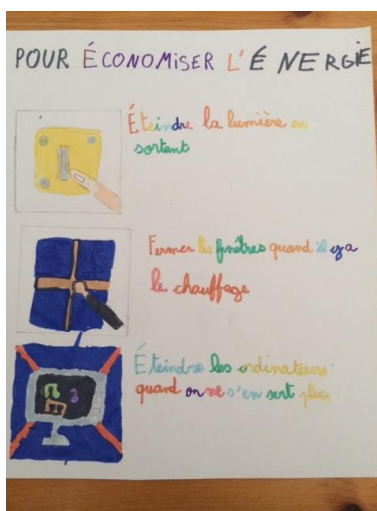 POUR ÉCONOMISER L'ÉNERGIE
Éteindre la lumière en
sortant
Fermer les fenêtres quand il y a
le chauffage
Éteindre les ordinateurs
quand on ne s'en sert plus